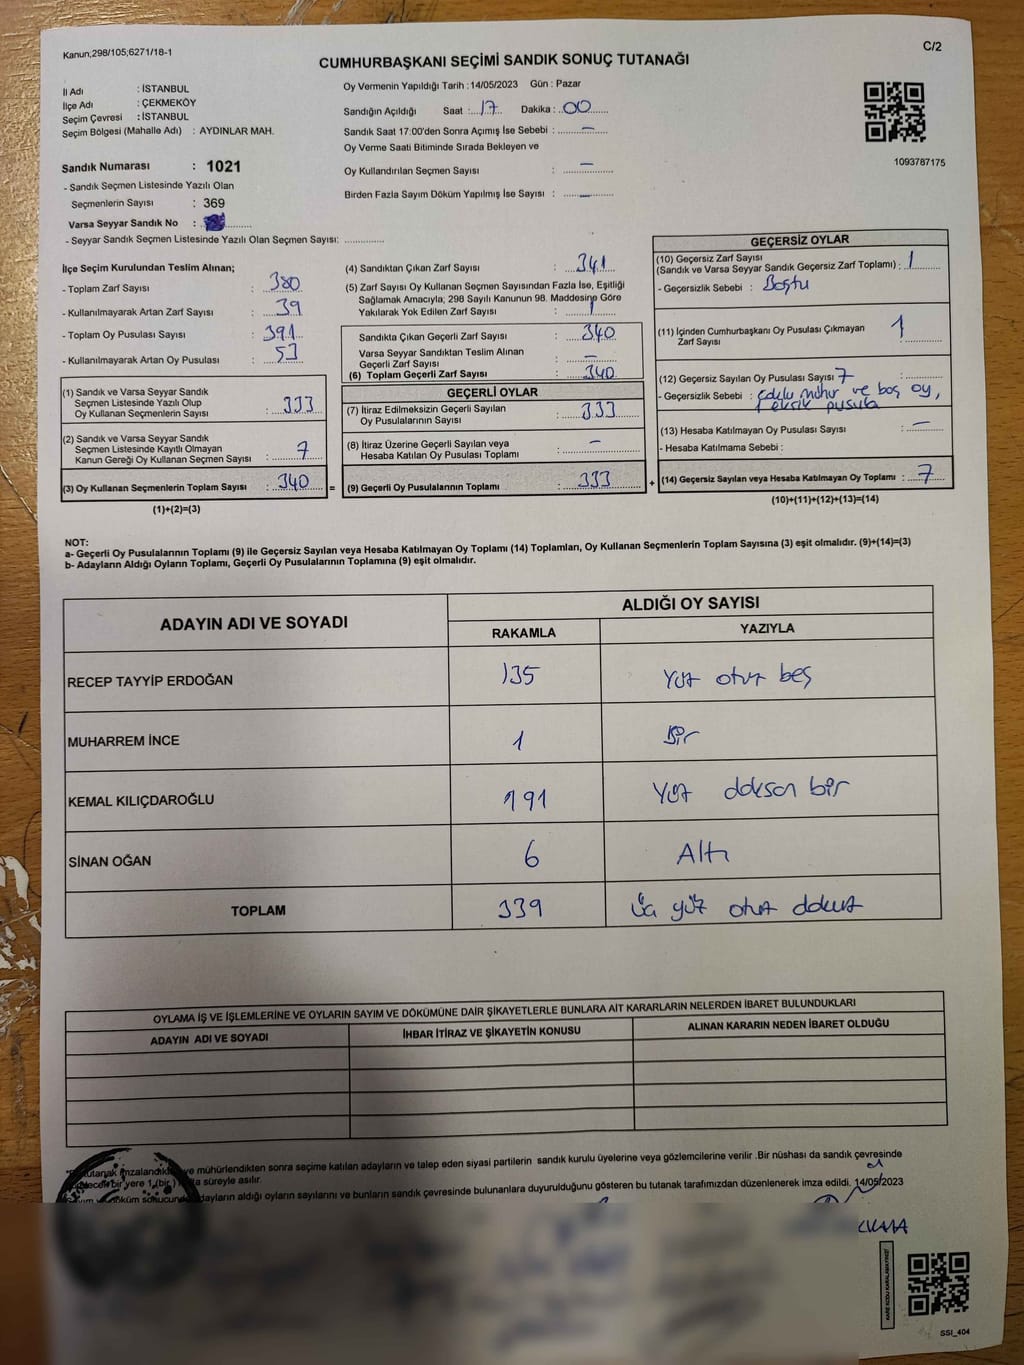 Kanun,298/105;6271/18-1
C/2
CUMHURBAŞKANI SEÇİMİ SANDIK SONUÇ TUTANAĞI
İl Adı : İSTANBUL
İlçe Adı : ÇEKMEKÖY
Seçim Çevresi : İSTANBUL
Seçim Bölgesi (Mahalle Adı) : AYDINLAR MAH.
Sandık Numarası : 1021
- Sandık Seçmen Listesinde Yazılı Olan
Seçmenlerin Sayısı : 369
Varsa Seyyar Sandık No :
- Seyyar Sandık Seçmen Listesinde Yazılı Olan Seçmen Sayısı: ..............
Oy Vermenin Yapıldığı Tarih : 14/05/2023 Gün : Pazar
Sandığın Açıldığı Saat : 17 Dakika : 00
Sandık Saat 17:00'den Sonra Açımış İse Sebebi : –
Oy Verme Saati Bitiminde Sırada Bekleyen ve
Oy Kullandırılan Seçmen Sayısı : –
Birden Fazla Sayım Döküm Yapılmış İse Sayısı : –
1093787175
İlçe Seçim Kurulundan Teslim Alınan;
- Toplam Zarf Sayısı : 380
- Kullanılmayarak Artan Zarf Sayısı : 39
- Toplam Oy Pusulası Sayısı : 391
- Kullanılmayarak Artan Oy Pusulası : 51
(1) Sandık ve Varsa Seyyar Sandık
Seçmen Listesinde Yazılı Olup
Oy Kullanan Seçmenlerin Sayısı : 333
(2) Sandık ve Varsa Seyyar Sandık
Seçmen Listesinde Kayıtlı Olmayan
Kanun Gereği Oy Kullanan Seçmen Sayısı : 7
(3) Oy Kullanan Seçmenlerin Toplam Sayısı : 340 =
(1)+(2)=(3)
(4) Sandıktan Çıkan Zarf Sayısı : 341
(5) Zarf Sayısı Oy Kullanan Seçmen Sayısından Fazla İse, Eşitliği
Sağlamak Amacıyla; 298 Sayılı Kanunun 98. Maddesine Göre
Yakılarak Yok Edilen Zarf Sayısı : 1
Sandıkta Çıkan Geçerli Zarf Sayısı : 340
Varsa Seyyar Sandıktan Teslim Alınan
Geçerli Zarf Sayısı : –
(6) Toplam Geçerli Zarf Sayısı : 340
GEÇERLİ OYLAR
(7) İtiraz Edilmeksizin Geçerli Sayılan
Oy Pusulalarının Sayısı : 333
(8) İtiraz Üzerine Geçerli Sayılan veya
Hesaba Katılan Oy Pusulası Toplamı : –
(9) Geçerli Oy Pusulalarının Toplamı : 333 +
GEÇERSİZ OYLAR
(10) Geçersiz Zarf Sayısı
(Sandık ve Varsa Seyyar Sandık Geçersiz Zarf Toplamı) : 1
- Geçersizlik Sebebi : Boştu
(11) İçinden Cumhurbaşkanı Oy Pusulası Çıkmayan
Zarf Sayısı : 1
(12) Geçersiz Sayılan Oy Pusulası Sayısı 7 :
- Geçersizlik Sebebi : mühür ve boş oy,
eksik pusula
(13) Hesaba Katılmayan Oy Pusulası Sayısı : –
- Hesaba Katılmama Sebebi :
(14) Geçersiz Sayılan veya Hesaba Katılmayan Oy Toplamı : 7
(10)+(11)+(12)+(13)=(14)
NOT:
a- Geçerli Oy Pusulalarının Toplamı (9) ile Geçersiz Sayılan veya Hesaba Katılmayan Oy Toplamı (14) Toplamları, Oy Kullanan Seçmenlerin Toplam Sayısına (3) eşit olmalıdır. (9)+(14)=(3)
b- Adayların Aldığı Oyların Toplamı, Geçerli Oy Pusulalarının Toplamına (9) eşit olmalıdır.
ADAYIN ADI VE SOYADI ALDIĞI OY SAYISI
RAKAMLA YAZIYLA
RECEP TAYYİP ERDOĞAN 135 Yüz otuz beş
MUHARREM İNCE 1 Bir
KEMAL KILIÇDAROĞLU 191 Yüz doksan bir
SİNAN OĞAN 6 Altı
TOPLAM 339 Üç yüz otuz dokuz
OYLAMA İŞ VE İŞLEMLERİNE VE OYLARIN SAYIM VE DÖKÜMÜNE DAİR ŞİKAYETLERLE BUNLARA AİT KARARLARIN NELERDEN İBARET BULUNDUKLARI
ADAYIN ADI VE SOYADI İHBAR İTİRAZ VE ŞİKAYETİN KONUSU ALINAN KARARIN NEDEN İBARET OLDUĞU
tutanak imzalandık ve mühürlendikten sonra seçime katılan adayların ve talep eden siyasi partilerin sandık kurulu üyelerine veya gözlemcilerine verilir .Bir nüshası da sandık çevresinde
bir yere 1 (bir) süreyle asılır.
döküm sonucunda adayların aldığı oyların sayılarını ve bunların sandık çevresinde bulunanlara duyurulduğunu gösteren bu tutanak tarafımızdan düzenlenerek imza edildi. 14/05/2023
KARE KODU KARALAMAYINIZ!
SSI_404